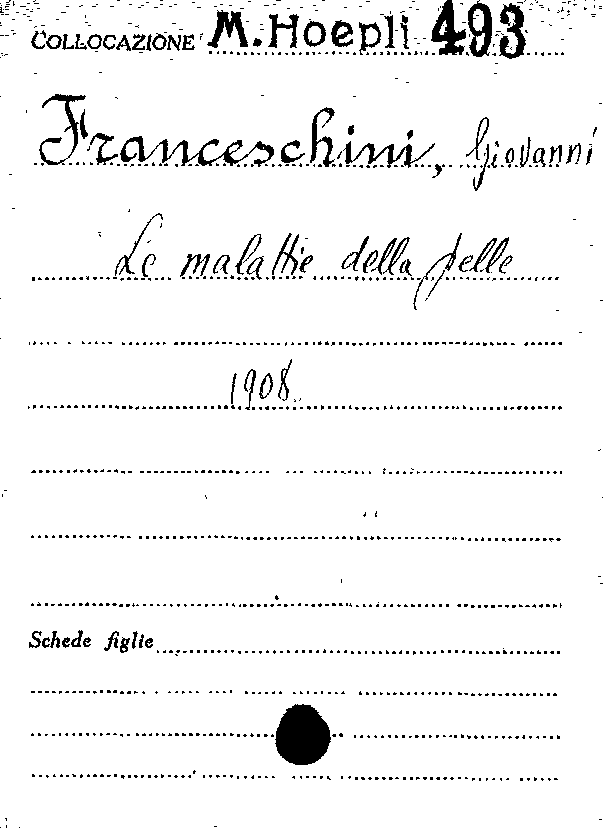 COLLOCAZIONE M. Hoepli 493
Franceschini, Giovanni
Le malattie della pelle
1908
Schede figlie